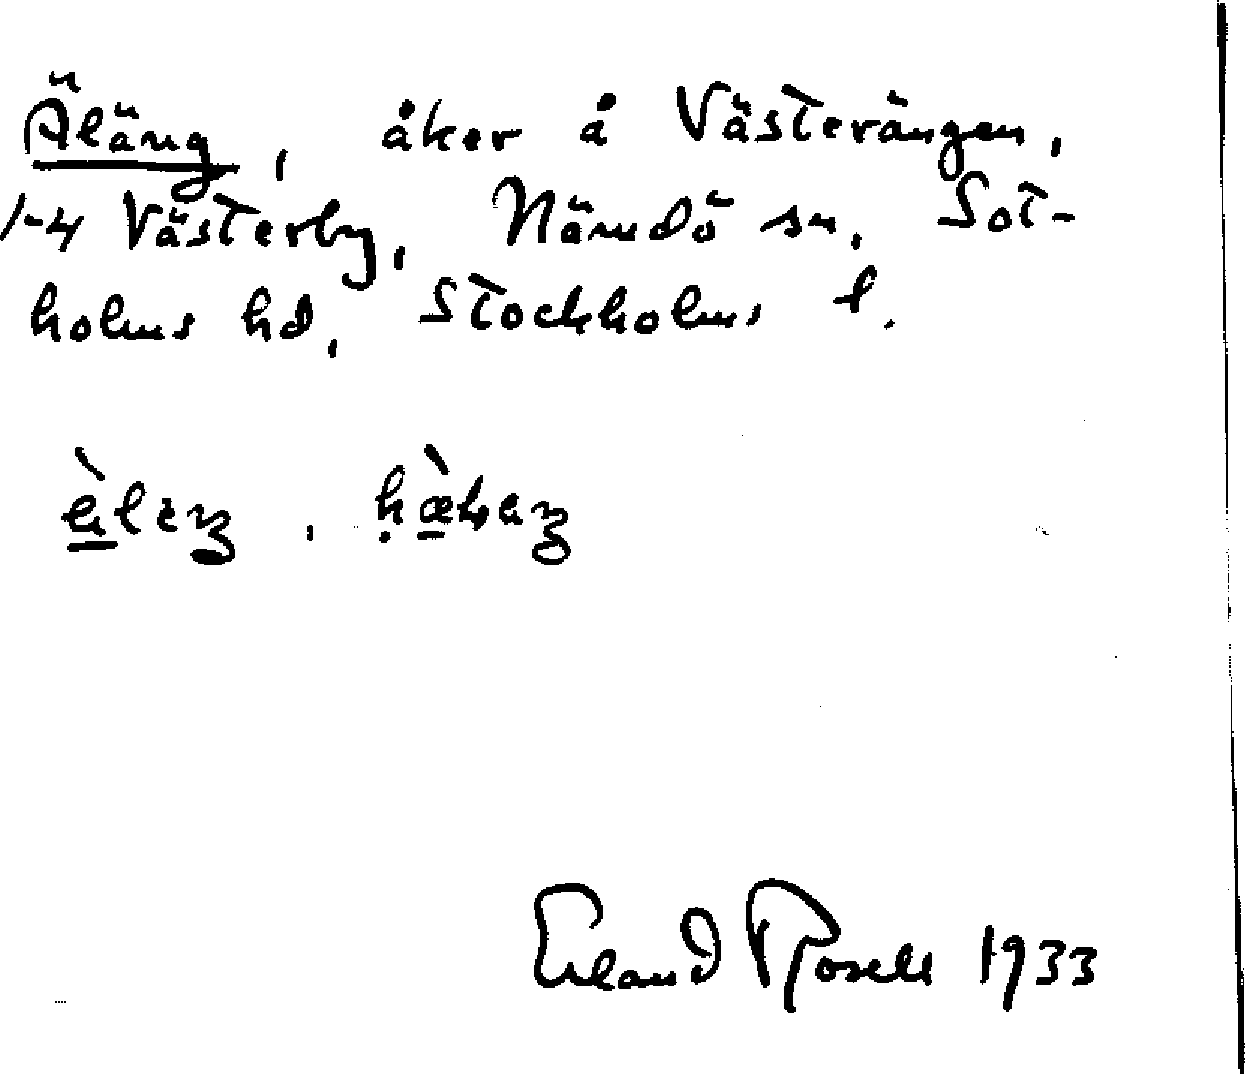 Äläng, åker å Västerängen,
1-4 Västerby, Nämdö sn, Sot-
holms hd, Stockholms l.
Erland Rosell 1933